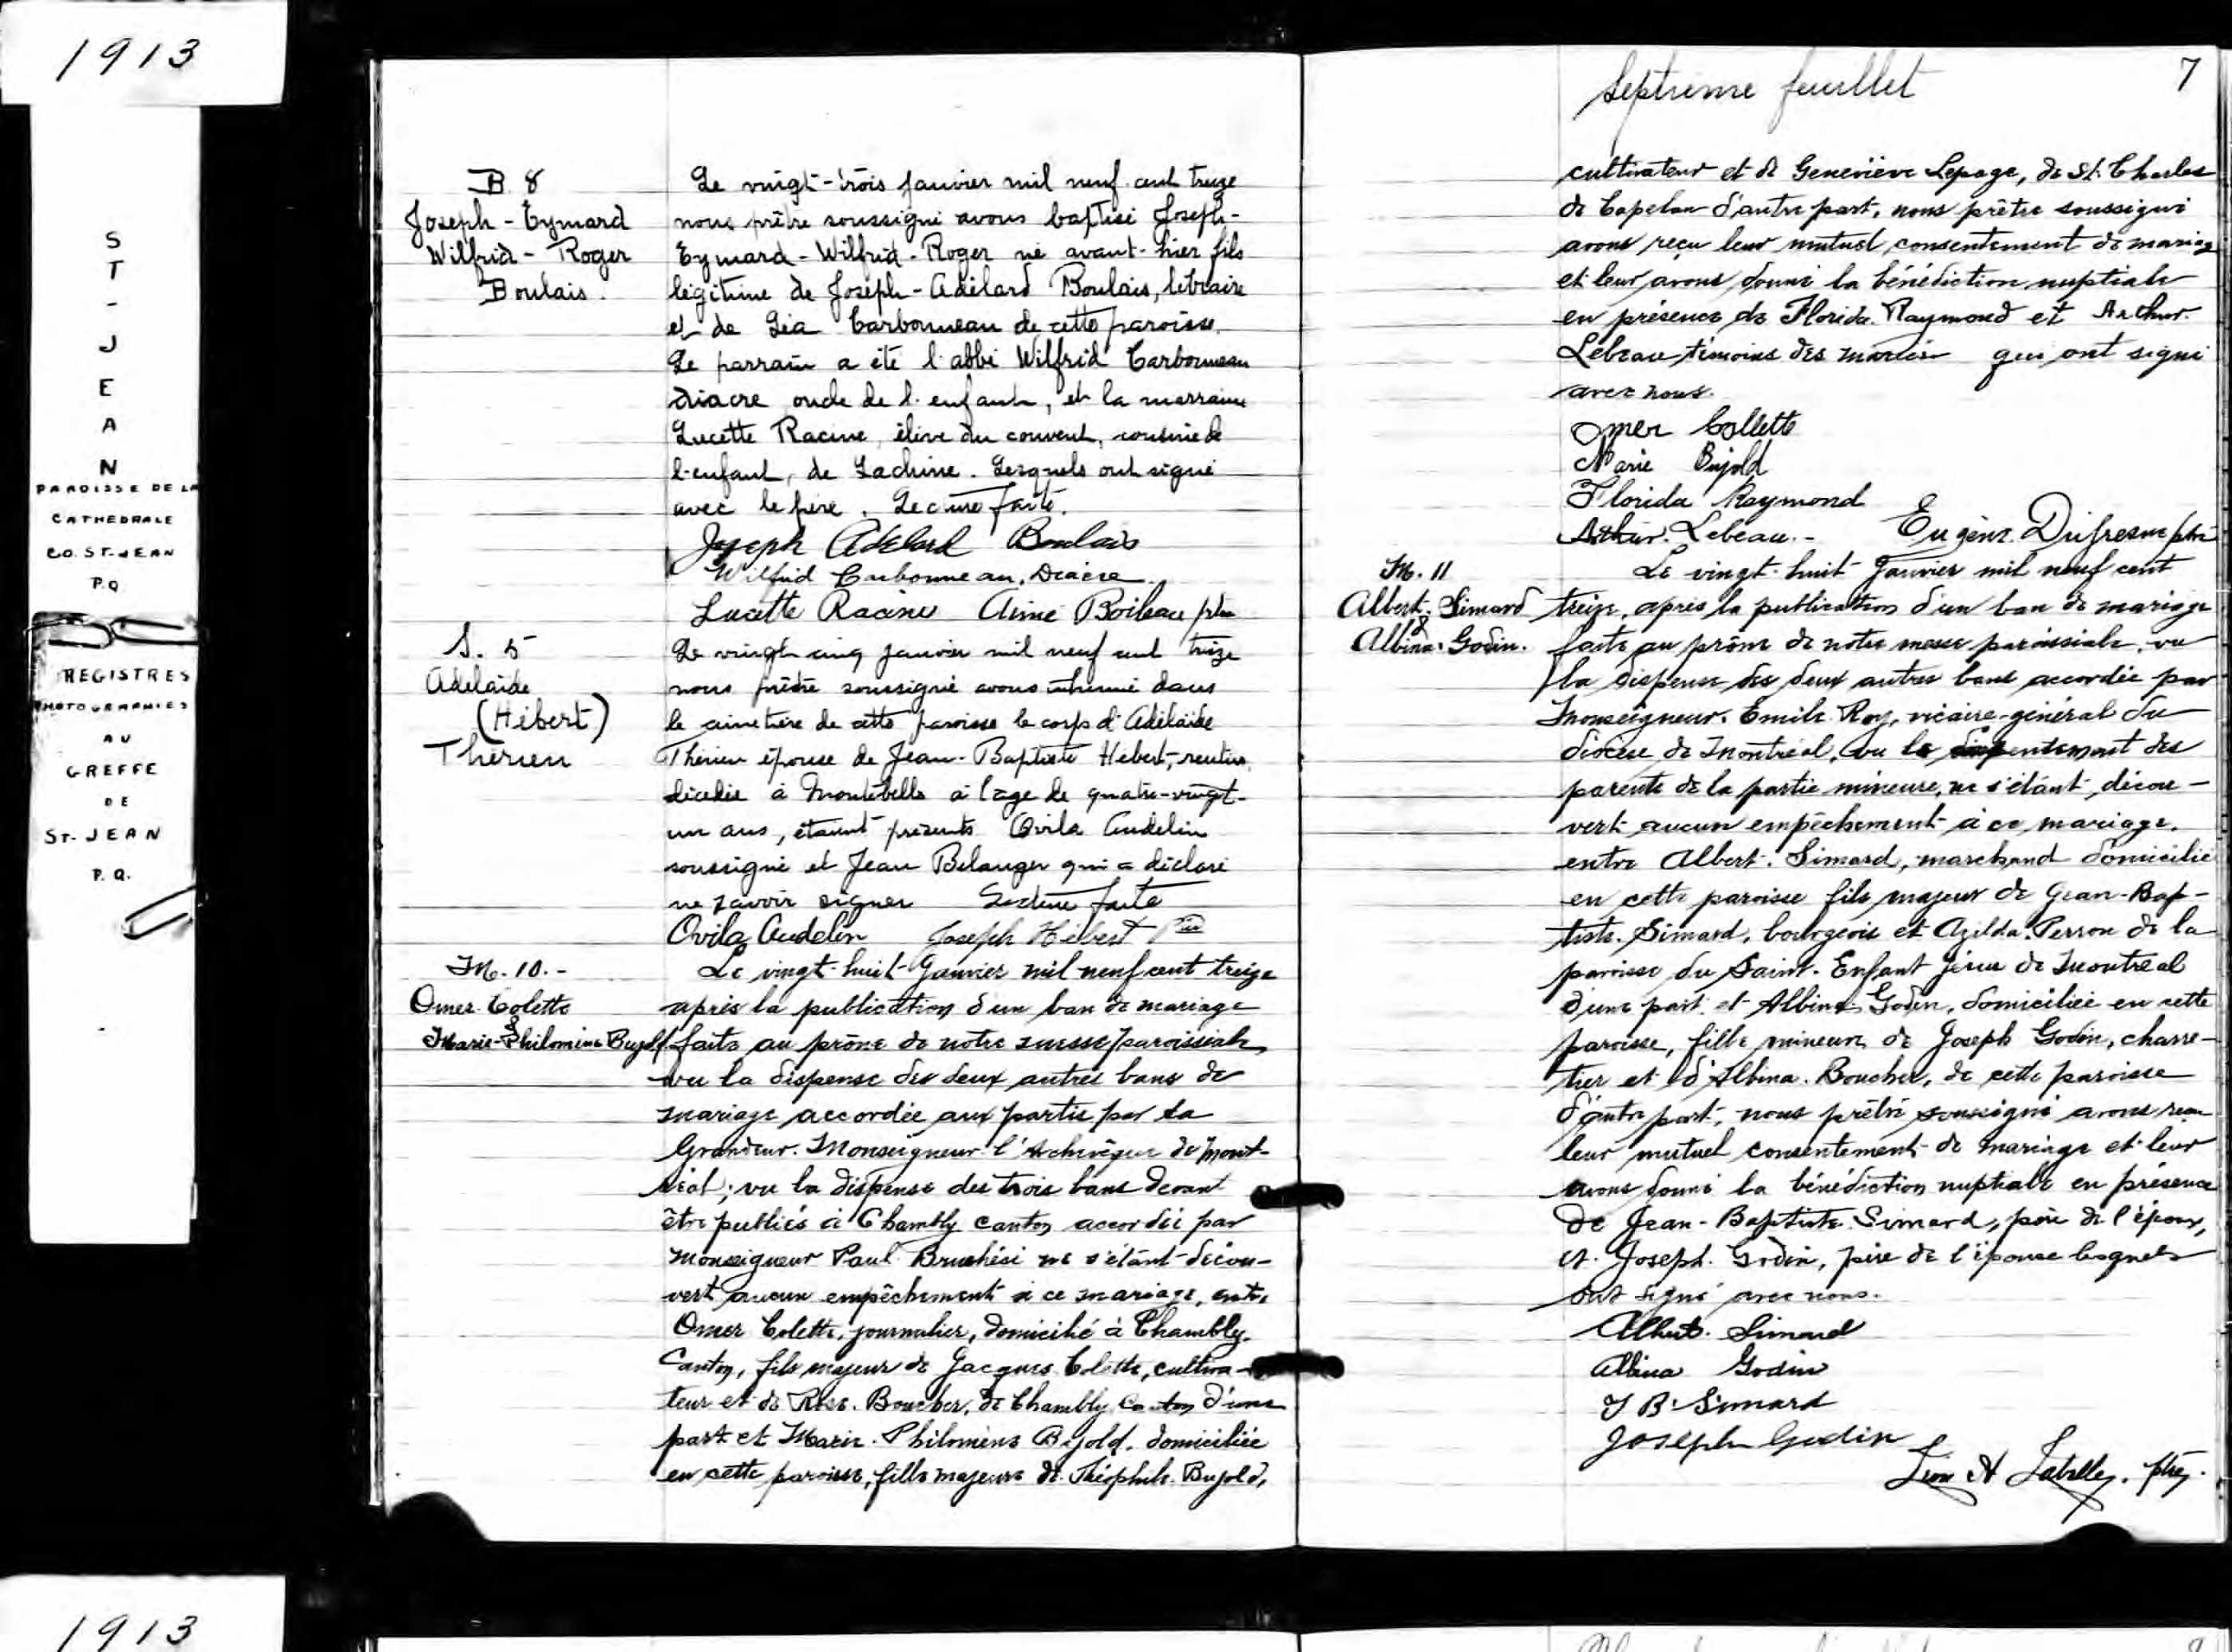 1913
ST-JEAN
PAROISSE DE LA
CATHEDRALE
CO. ST-JEAN
P.Q
REGISTRES
PHOTOGRAPHIES
AU
GREFFE
DE
ST-JEAN
P.Q.
1913
B 8
Joseph-Eymard
Wilfrid-Roger
Boulais.
Le vingt-trois janvier mil neuf cent treize
nous prêtre soussigné avons baptisé Joseph-
Eymard-Wilfrid-Roger né avant-hier fils
légitime de Joseph-Adélard Boulais, libraire
et de Léa Carbonneau de cette paroisse.
Le parrain a été l'abbé Wilfrid Carbonneau
diacre oncle de l'enfant, et la marraine
Lucette Racine, élève du couvent, cousine de
l'enfant, de Lachine. Lesquels ont signé
avec le père. Lecture faite.
Joseph Adelard Boulais
Wilfrid Carbonneau, Diacre.
Lucette Racine Aimé Boileau ptre
S. 5
Adelaïde
(Hébert)
Therien
Le vingt-cinq janvier mil neuf cent treize
nous prêtre soussigné avons inhumé dans
le cimetière de cette paroisse le corps d'Adélaïde
Thérien épouse de Jean-Baptiste Hébert, rentier
décédée à Montebello à l'âge de quatre-vingt-
un ans, étaient présents Ovila Audelin
soussigné et Jean Bélanger qui a déclaré
ne savoir signer Lecture faite
Ovila Audelin Joseph Hébert Ptre
M. 10.-
Omer Colette
&
Marie-Philomène Bujold
Le vingt-huit Janvier mil neuf cent treize
après la publication d'un ban de mariage
faite au prône de notre messe paroissiale,
vu la dispense des deux autres bans de
mariage accordée aux partis par Sa
Grandeur Monseigneur l'Archevêque de Mont-
réal; vu la dispense des trois bans devant
être publiés à Chambly canton accordée par
Monseigneur Paul Bruchési ne s'étant décou-
vert aucun empêchement à ce mariage, entre
Omer Colette, journalier, domicilié à Chambly
Canton, fils majeur de Jacques Colette, cultiva-
teur et de Rose Boucher, de Chambly Canton d'une
part et Marie-Philomène Bujold, domiciliée
en cette paroisse, fille majeure de Théophile Bujold,
Septieme feuillet 7
cultivateur et de Geneviève Lepage, de St. Charles
de Capelan d'autre part, nous prêtre soussigné
avons reçu leur mutuel consentement de mariage
et leur avons donné la bénédiction nuptiale
en présence de Florida Raymond et Arthur
Lebeau témoins des mariés qui ont signé
avec nous.
Omer Collette
Marie Bujold
Florida Raymond
Arthur Lebeau.- Eugène Dufresne ptre
M. 11
Albert Simard
&
Albina Godin.
Le vingt-huit Janvier mil neuf cent
treize, après la publication d'un ban de mariage
faite au prône de notre messe paroissiale, vu
la dispense des deux autres bans accordée par
Monseigneur Emile Roy, vicaire-général du
diocèse de Montréal, vu le consentement des
parents de la partie mineure, ne s'étant décou-
vert aucun empêchement à ce mariage.
entre Albert Simard, marchand domicilié
en cette paroisse fils majeur de Jean-Bap-
tiste Simard, bourgeois et Azilda Perron de la
paroisse du Saint-Enfant Jésus de Montréal
d'une part et Albina Godin, domiciliée en cette
paroisse, fille mineure de Joseph Godin, charre-
tier et d'Albina Boucher, de cette paroisse
d'autre part, nous prêtre soussigné avons reçu
leur mutuel consentement de mariage et leur
avons donné la bénédiction nuptiale en présence
de Jean-Baptiste Simard, père de l'époux,
et Joseph Godin, père de l'épouse lesquels
ont signé avec nous.
Albert Simard
Albina Godin
J B Simard
Joseph Godin
Léon A Labelle, ptre.